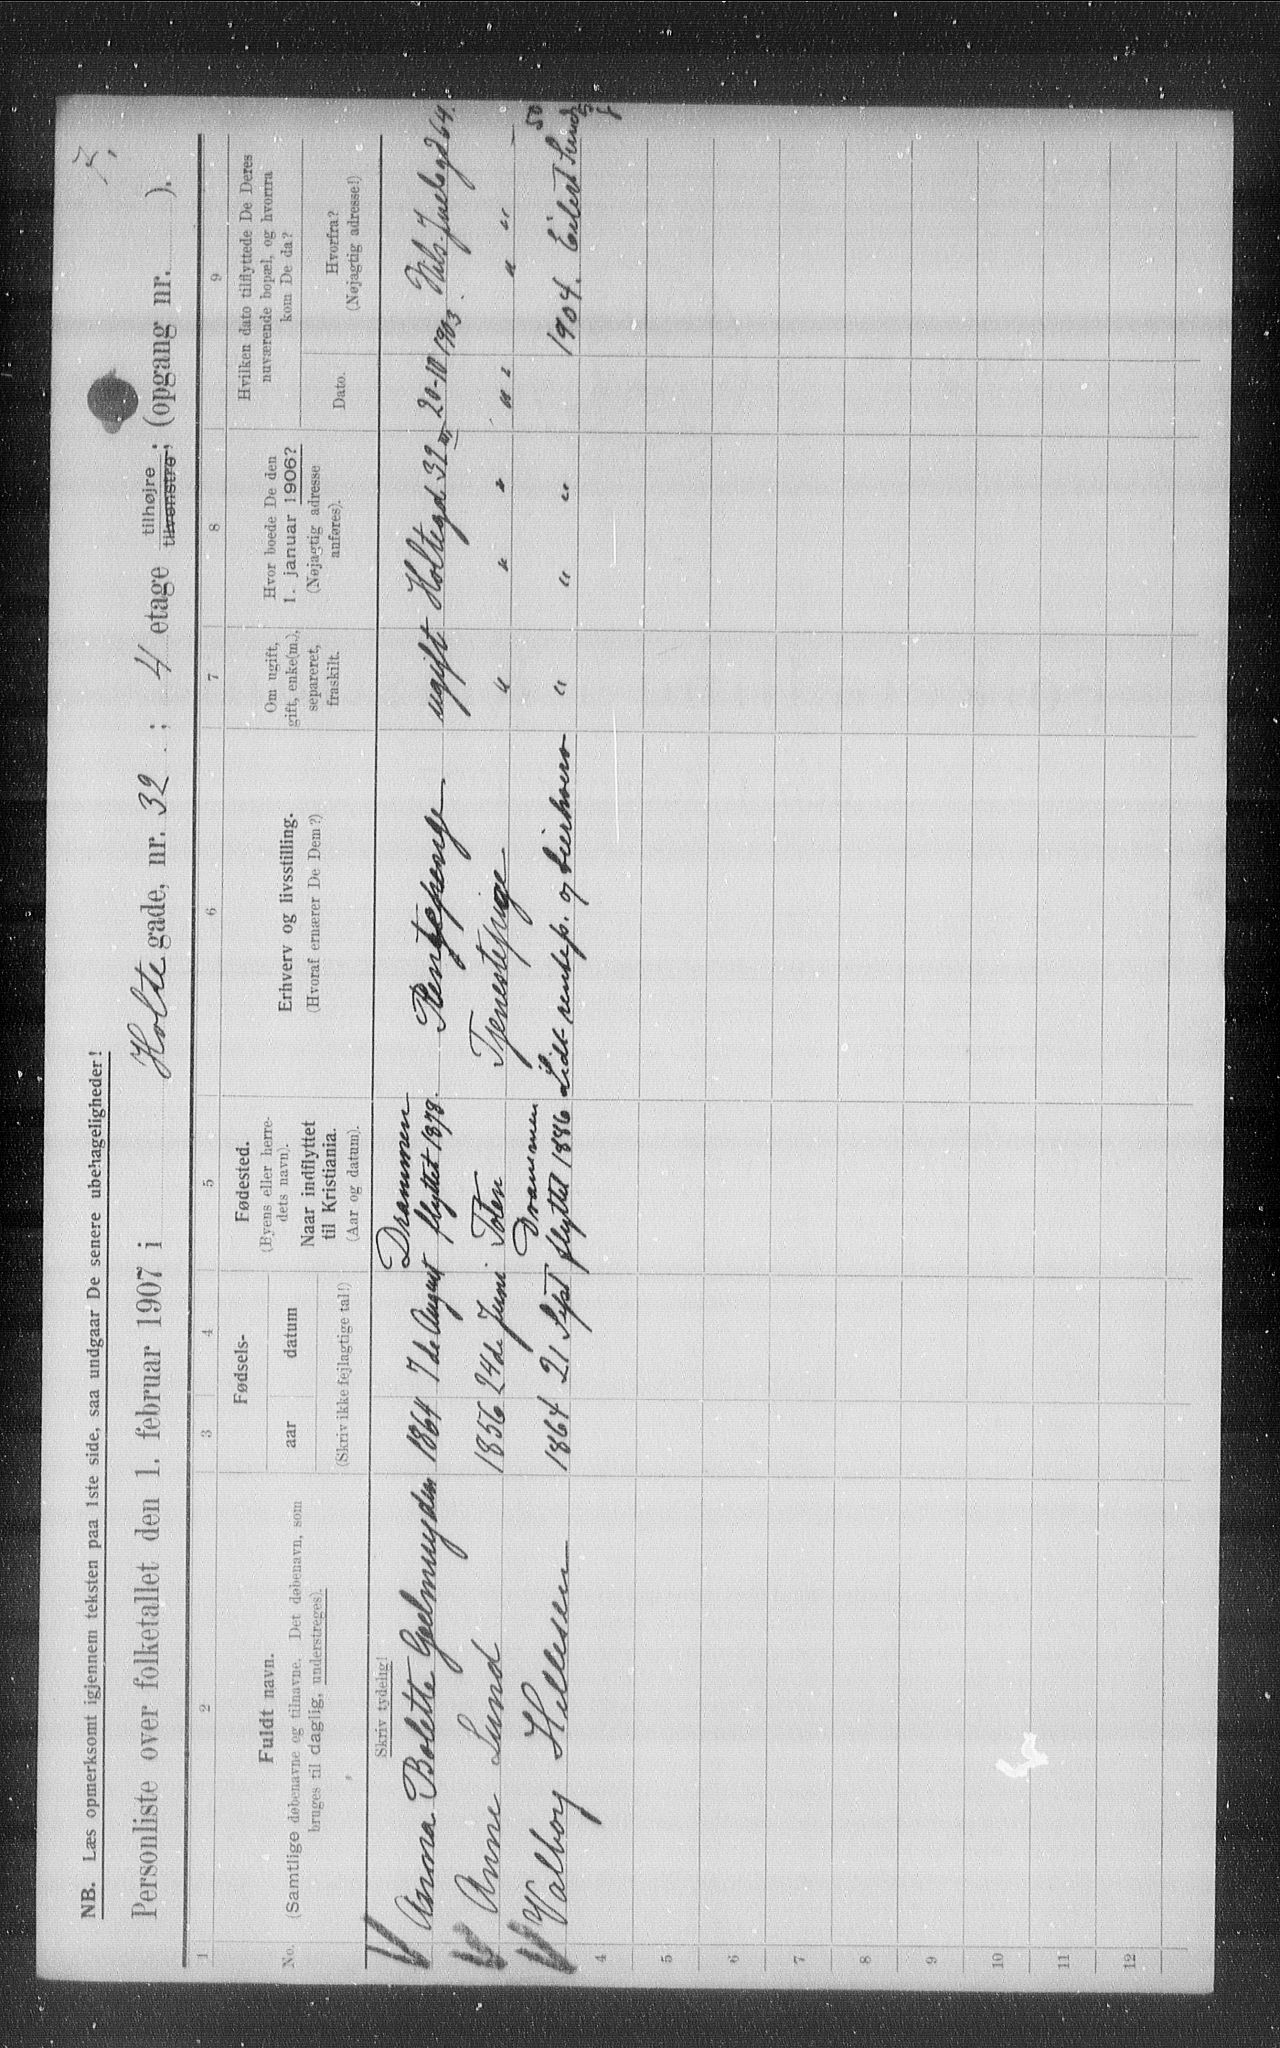 7,
NB. Læs opmerksomt igjennem teksten paa 1ste side, saa undgaar De senere ubehageligheder!
Personliste over folketallet den 1. februar 1907 i Holte gade, nr. 32 ; 4 etage tilhøjre ; (opgang nr. ).
tilvenstre
1 2 3 4 5 6 7 8 9
No.
Fuldt navn.
(Samtlige døbenavne og tilnavne. Det døbenavn, som
bruges til daglig, understreges).
Fødsels-
aar datum
(Skriv ikke fejlagtige tal!)
Fødested.
(Byens eller herre-
dets navn).
Naar indflyttet
til Kristiania.
(Aar og datum).
Erhverv og livsstilling.
(Hvoraf ernærer De Dem?)
Om ugift,
gift, enke(m.),
separeret,
fraskilt.
Hvor boede De den
1. januar 1906?
(Nøjagtig adresse
anføres).
Hvilken dato tilflyttede De Deres
nuværende bopæl, og hvorfra
kom De da?
Dato.
Hvorfra?
(Nøjagtig adresse!)
Skriv tydelig!
Anna Bolette Gjelmuyden 1864 7de August Drammen flyttet 1878. Rentepenge ugift Holtegd 32 20-10 1903. Nils Juelsgd 64.
Anne Lund 1856 24de Juni Toten Tjenestepige " " " " " " "
Valborg Hellesen 1864 21 Sept Drammen flyttet 1886 Lidt rentep. og " " " 1904. Eilert Sund 50
4
5
6
7
8
9
10
11
12